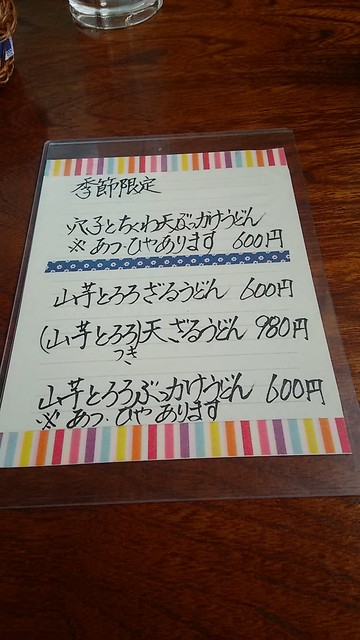 季節限定
穴子とちくわ天ぶっかけうどん
※あつ・ひやあります 600円
山芋とろろざるうどん 600円
(山芋とろろ)天ざるうどん 980円
つき
山芋とろろぶっかけうどん 600円
※あつ・ひやあります